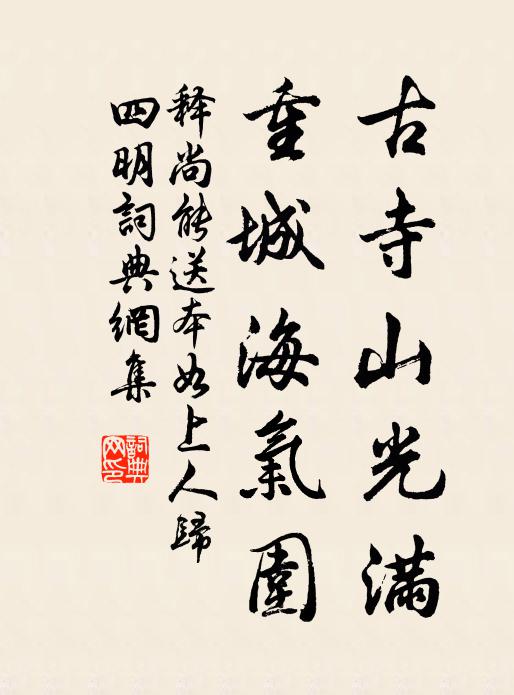 古寺山光滿
重城海氣圍
释尚能送本如上人歸
四明詞典網集
詞典
网印